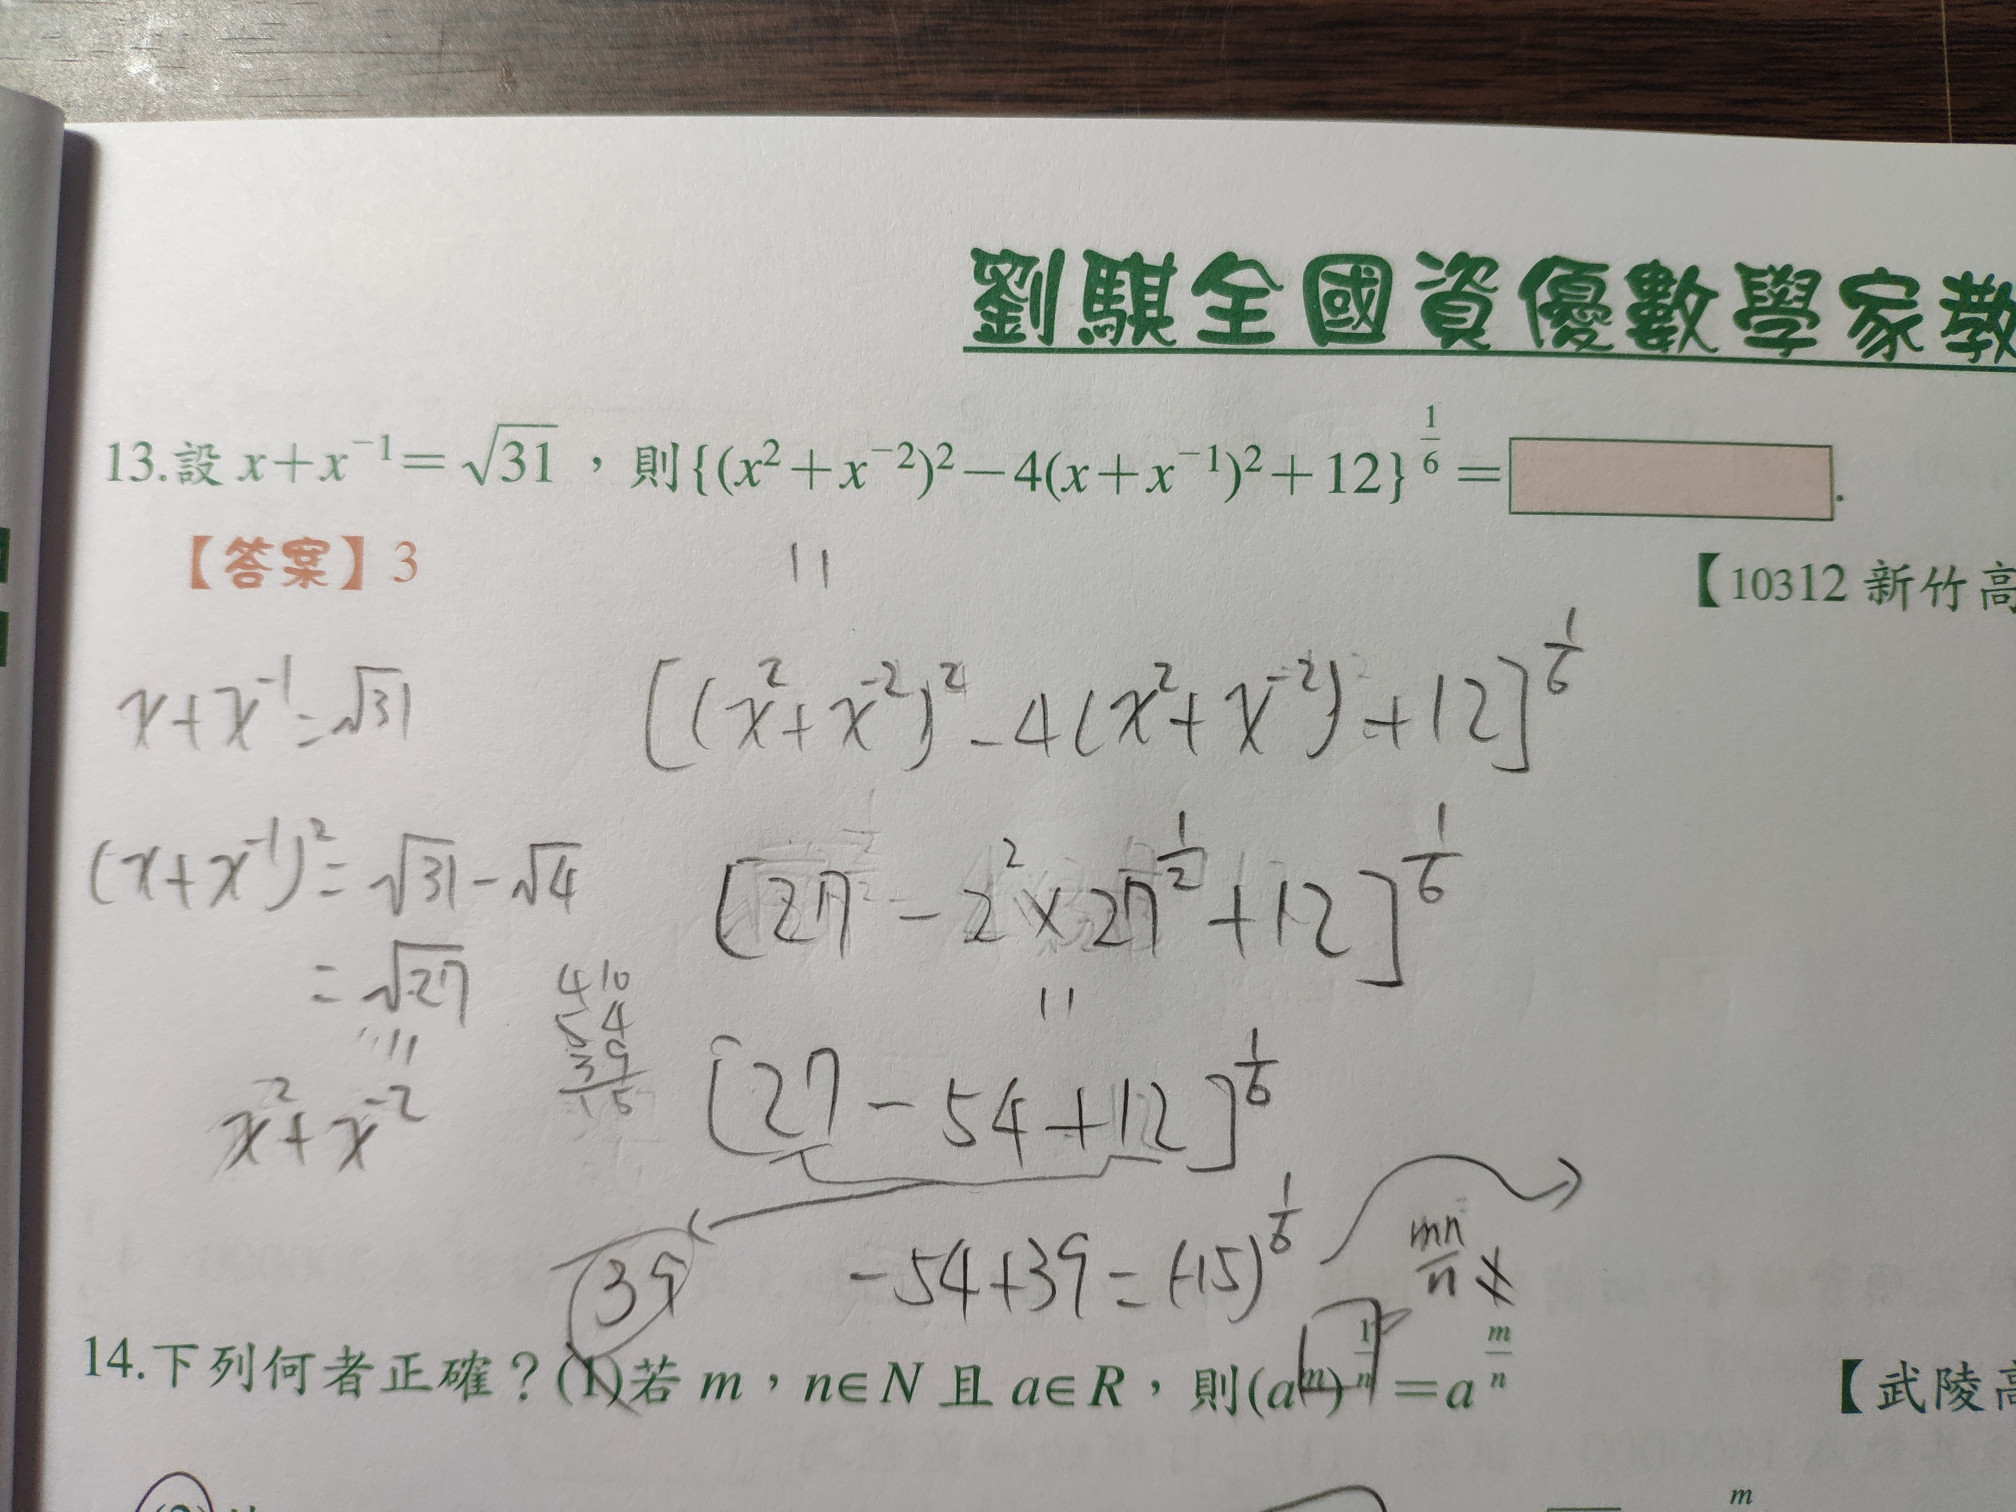 劉騏全國資優數學家教
13.設 x+x⁻¹=√31，則{(x²+x⁻²)²−4(x+x⁻¹)²+12}^(1/6)=
【答案】3
【10312 新竹高
x+x⁻¹=√31
(x+x⁻¹)²=√31-√4
=√27
x²+x⁻²
[(x²+x⁻²)²-4(x²+x⁻²)+12]^(1/6)
[27-2²×27^(1/2)+12]^(1/6)
[27-54+12]^(1/6)
39
-54+39=(-15)^(1/6)
mn/n
14.下列何者正確？(1)若 m，n∈N 且 a∈R，則(a^m)^(1/n)=a^(m/n)
【武陵高
m